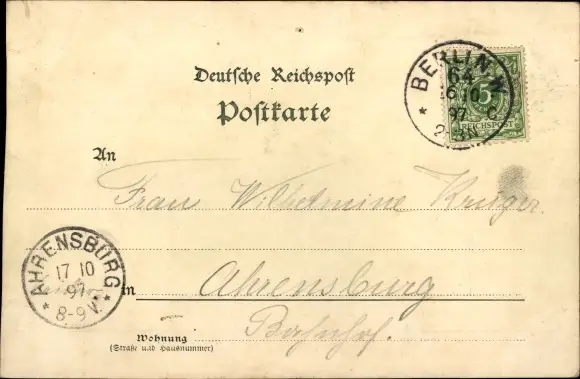 Deutsche Reichspost
Postkarte
BERLIN W
64
16/10
97
2-3N
5
REICHSPOST
An
Frau Wilhelmine Krüger.
AHRENSBURG
17 10
97
8-9V.
in
Ahrensburg
Bahnhof.
Wohnung
(Straße und Hausnummer)